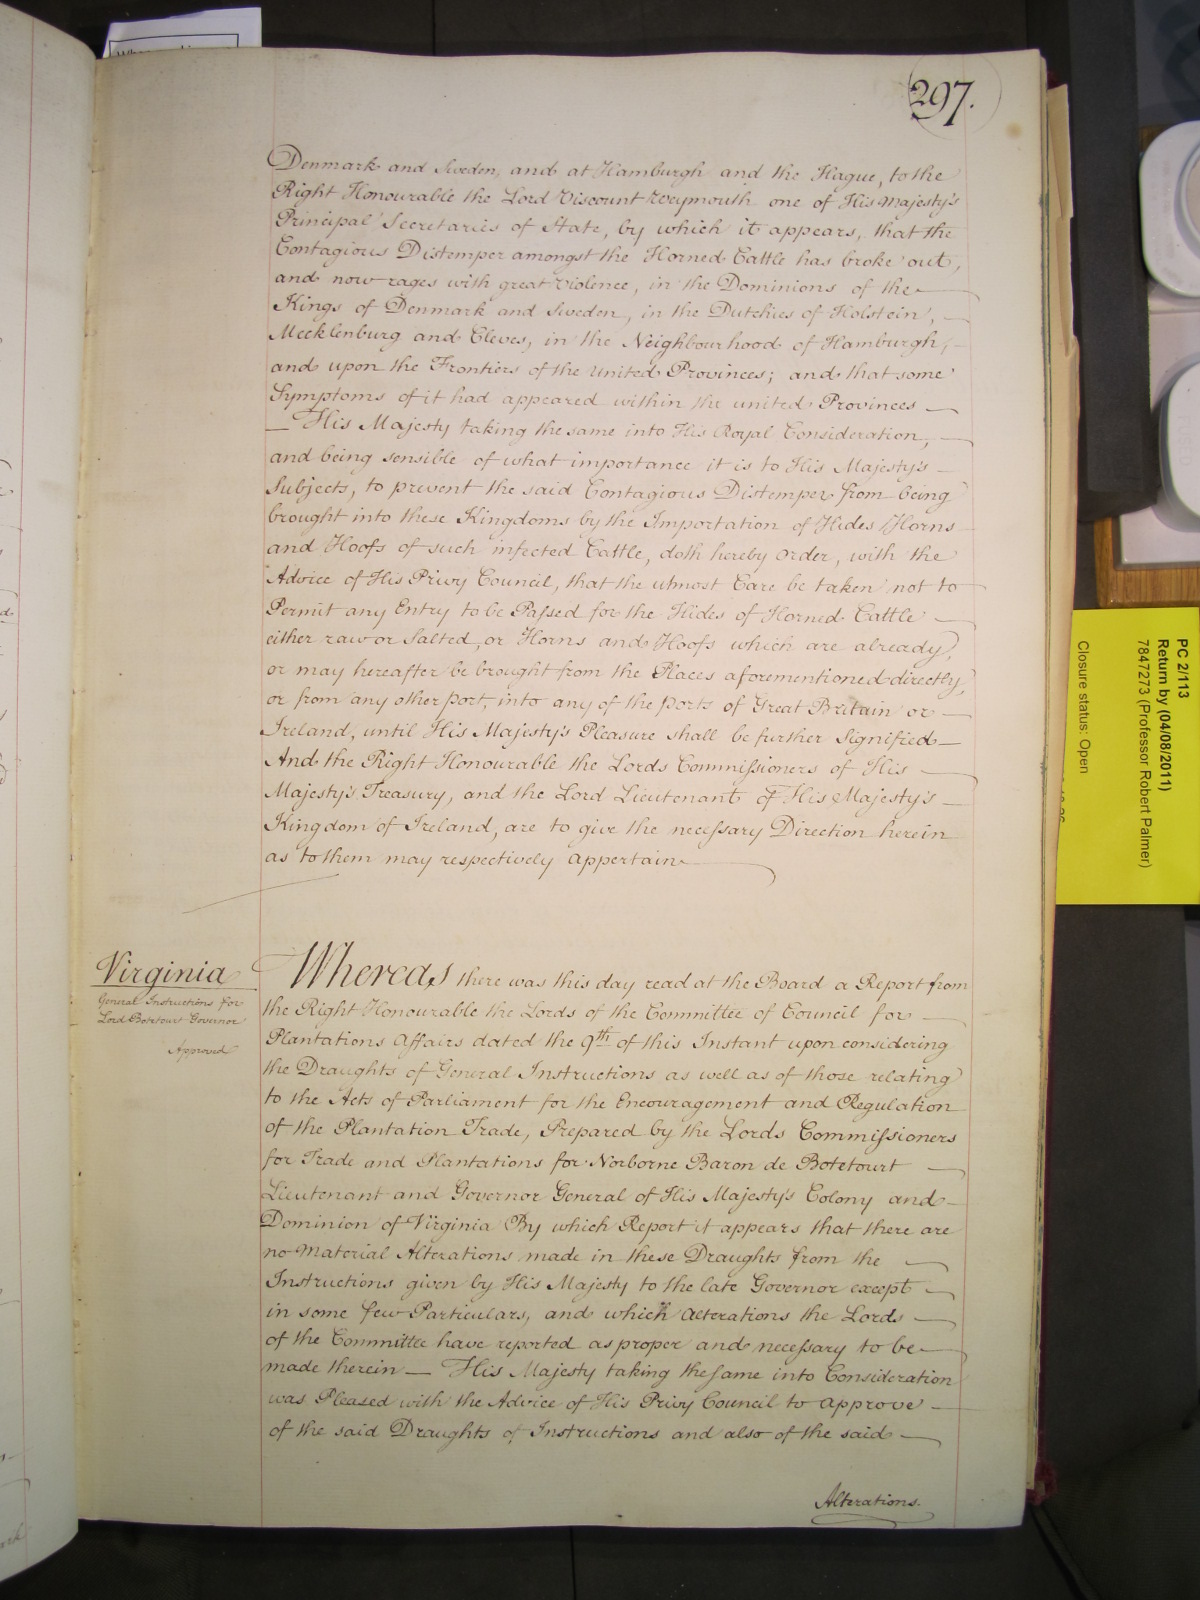 297.
Denmark and Sweden, and at Hamburgh and the Hague, to the
Right Honourable the Lord Viscount Weymouth one of His Majesty's
Principal Secretaries of State, by which it appears, that the
Contagious Distemper amongst the Horned Cattle has broke out,
and now rages with great Violence, in the Dominions of the
Kings of Denmark and Sweden, in the Dutchies of Holstein,
Mecklenburg and Cleves, in the Neighbourhood of Hamburgh,
and upon the Frontiers of the United Provinces; and that some
Symptoms of it had appeared within the united Provinces —
— His Majesty taking the same into His Royal Consideration,
and being sensible of what importance it is to His Majesty's
Subjects, to prevent the said Contagious Distemper from being
brought into these Kingdoms by the Importation of Hides Horns
and Hoofs of such infected Cattle, doth hereby Order, with the
Advice of His Privy Council, that the utmost Care be taken not to
Permit any Entry to be Passed for the Hides of Horned Cattle
either raw or Salted, or Horns and Hoofs which are already,
or may hereafter be brought from the Places aforementioned directly,
or from any other Port, into any of the Ports of Great Britain or
Ireland, until His Majesty's Pleasure shall be further Signified —
And the Right Honourable the Lords Commissioners of His
Majesty's Treasury, and the Lord Lieutenant of His Majesty's
Kingdom of Ireland, are to give the necessary Direction herein
as to them may respectively appertain
Virginia
General Instructions for
Lord Botetourt Governor
Approved
Whereas there was this day read at the Board a Report from
the Right Honourable the Lords of the Committee of Council for
Plantations Affairs dated the 9th of this Instant upon considering
the Draughts of General Instructions as well as of those relating
to the Acts of Parliament for the Encouragement and Regulation
of the Plantation Trade, Prepared by the Lords Commissioners
for Trade and Plantations for Norborne Baron de Botetourt
Lieutenant and Governor General of His Majesty's Colony and
Dominion of Virginia By which Report it appears that there are
no Material Alterations made in these Draughts from the
Instructions given by His Majesty to the late Governor except
in some few Particulars, and which Alterations the Lords
of the Committee have reported as proper and necessary to be
made therein — His Majesty taking the same into Consideration
was Pleased with the Advice of His Privy Council to approve
of the said Draughts of Instructions and also of the said
Alterations.
PC 2/113
Return by (04/08/2011)
7847273 (Professor Robert Palmer)
Closure status: Open